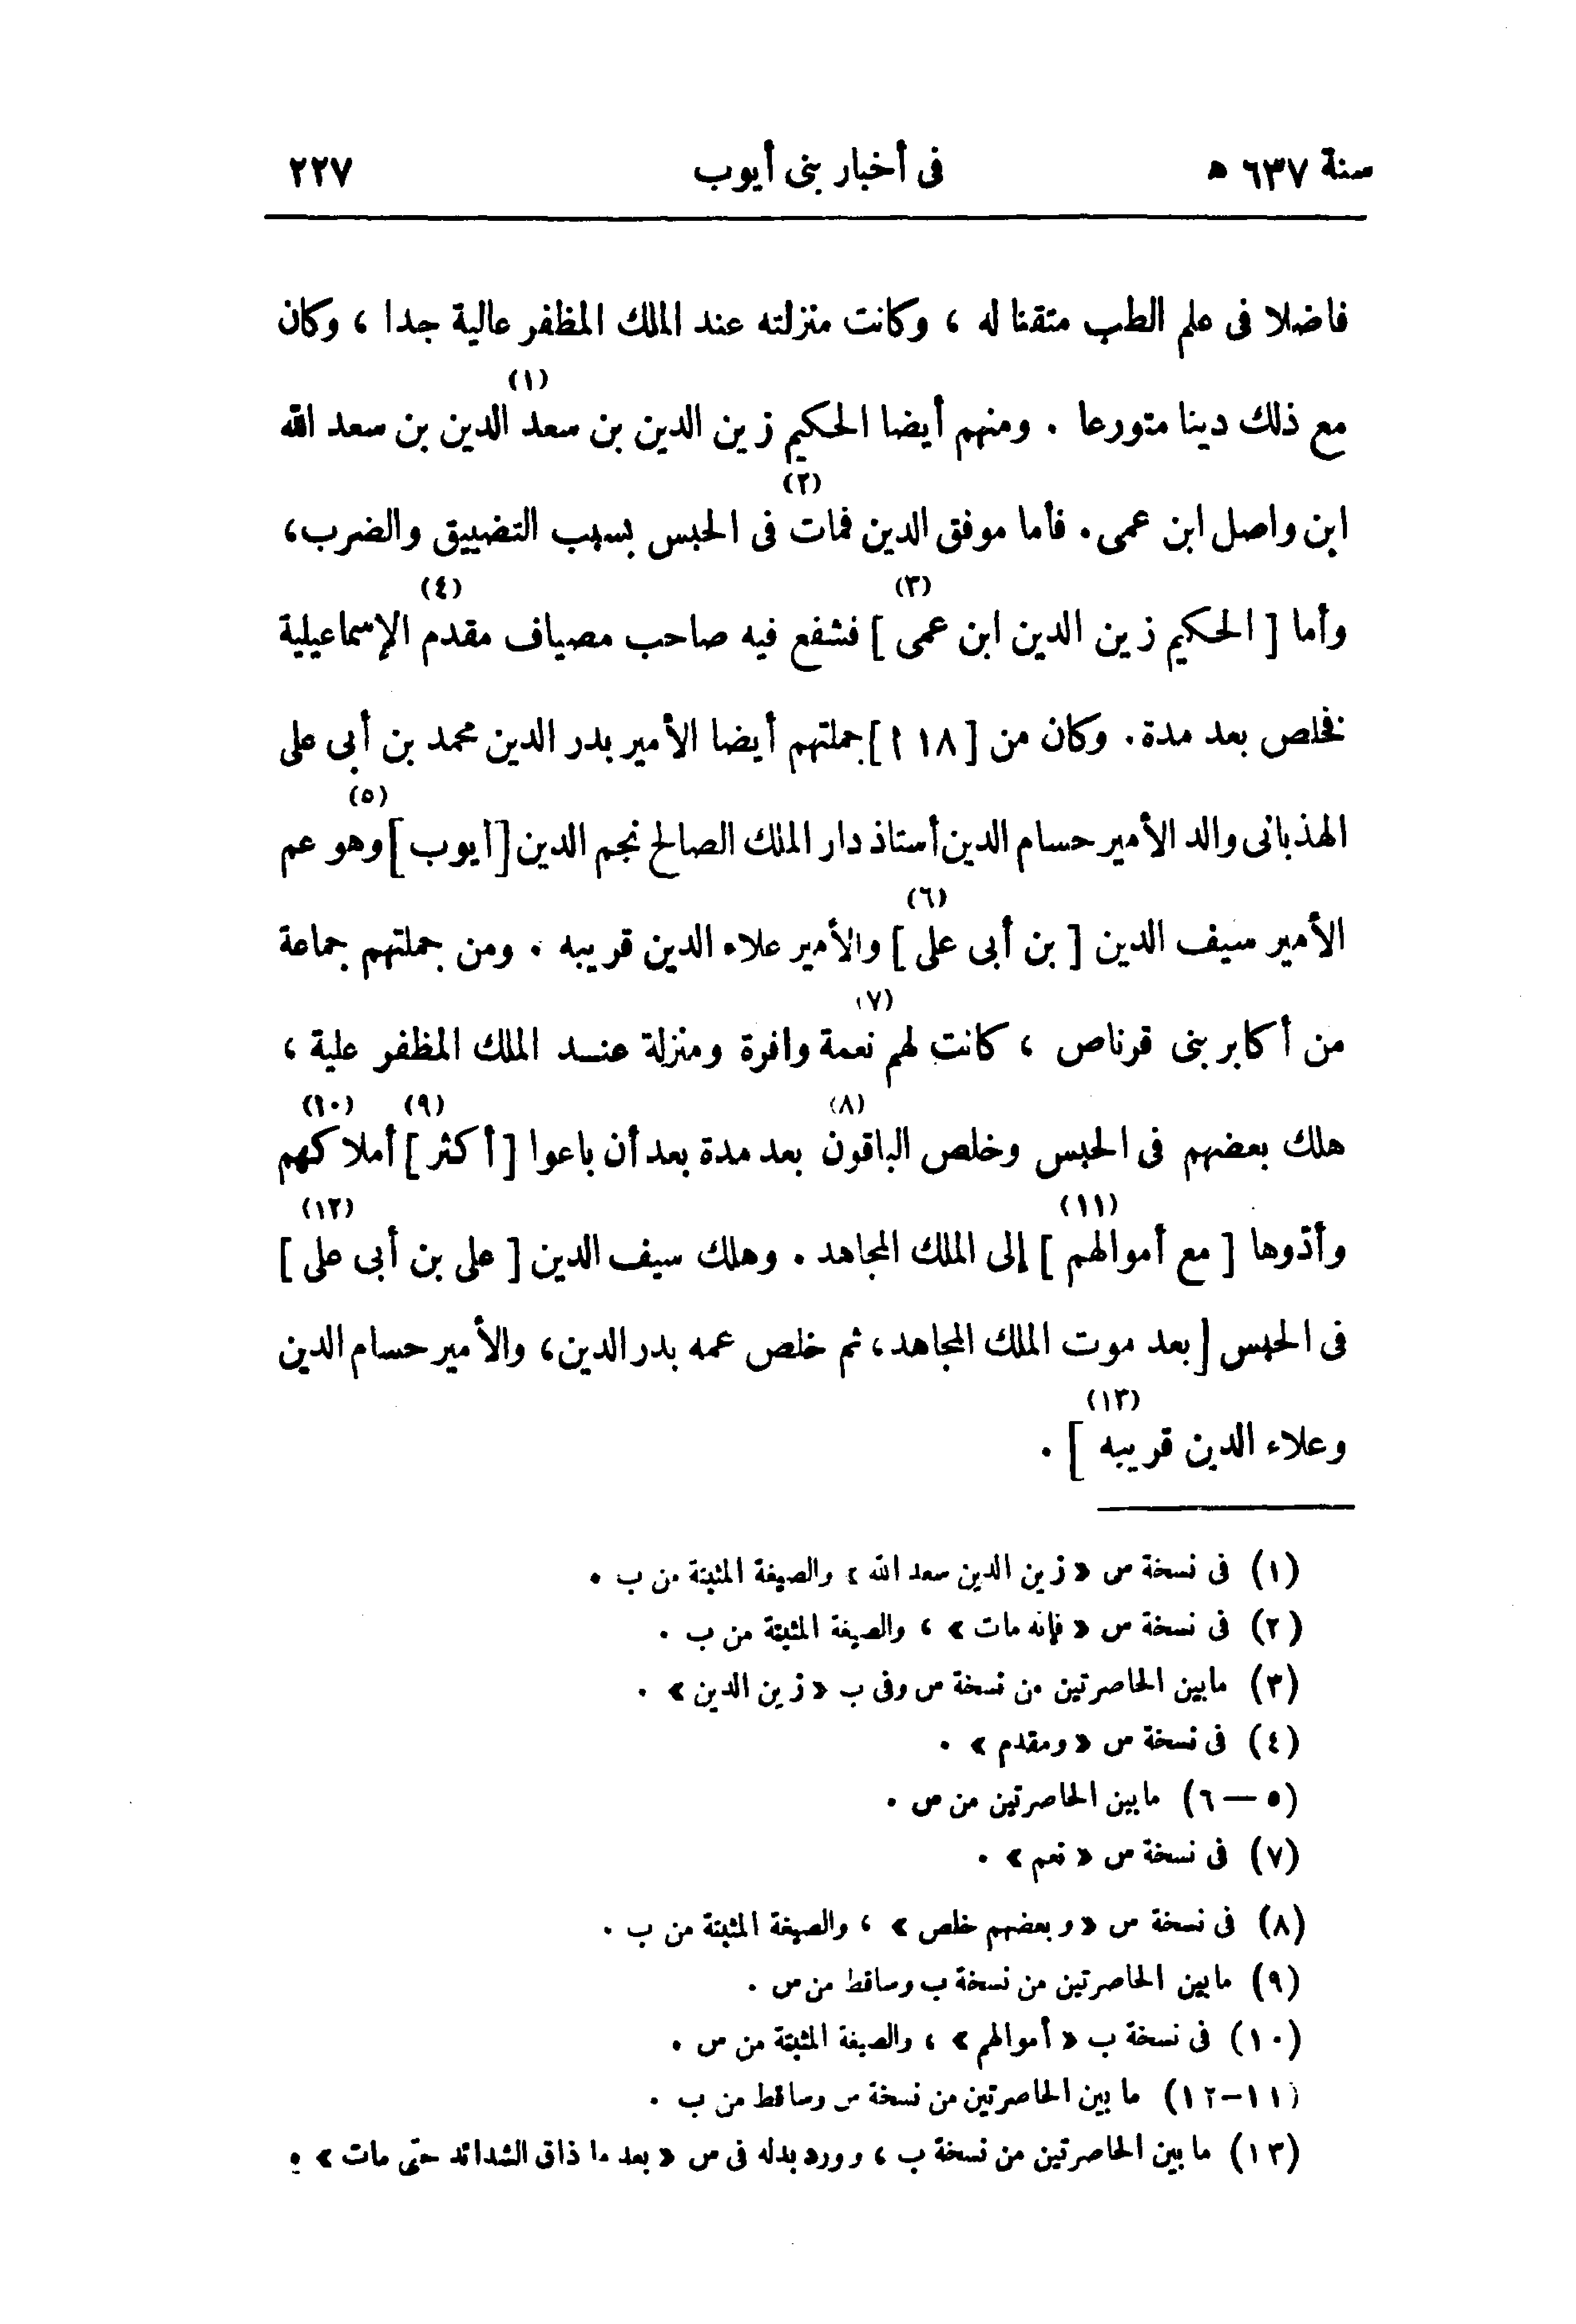 سنة ٦٣٧ ه فى أخبار بنى أيوب ٢٢٧
فاضلا فى علم الطب متقنا له ، وكانت منزلته عند الملك المظفر عالية جدا ، وكان
مع ذلك دينا متورعا . ومنهم أيضا الحكيم زين الدين بن سعد (١) الدين بن سعد الله
ابن واصل ابن عمى . فأما موفق الدين فمات (٢) فى الحبس بسبب التضييق والضرب،
وأما [ الحكيم زين الدين ابن عمى (٣) ] فشفع فيه صاحب مصياف مقدم (٤) الإسماعيلية
فخلص بعد مدة . وكان من [ ١٨ ا ] جملتهم أيضا الأمير بدر الدين محمد بن أبى على
الهذبانى والد الأمير حسام الدين أستاذ دار الملك الصالح نجم الدين [أيوب] (٥) وهو عم
الأمير سيف الدين [ بن أبى على (٦) ] والأمير علاء الدين قريبه . ومن جملتهم جماعة
من أكابر بنى قرناص ، كانت لهم نعمة (٧) وافرة ومنزلة عنـد الملك المظفر علية ،
هلك بعضهم فى الحبس وخلص الباقون (٨) بعد مدة بعد أن باعوا [ أكثر ] (٩) أملاكهم (١٠)
وأدّوها [ مع أموالهم (١١) ] إلى الملك المجاهد . وهلك سيف الدين [ على بن أبى على (١٢) ]
فى الحبس [ بعد موت الملك المجاهد، ثم خلص عمه بدر الدين، والأمير حسام الدين
وعلاء الدين قريبه (١٣) ] .
(١) فى نسخة س « زين الدين سعد الله » والصيغة المثبتة من ب .
(٢) فى نسخة س « فإنه مات » ، والصيغة المثبتة من ب .
(٣) مابين الحاصرتين من نسخة س وفى ب « زين الدين » .
(٤) فى نسخة س « ومقدم » .
(٥ — ٦) مابين الحاصرتين من س .
(٧) فى نسخة س « نعم » .
(٨) فى نسخة س « وبعضهم خلص » ، والصيغة المثبتة من ب .
(٩) مابين الحاصرتين من نسخة ب وساقط من س .
(١٠) فى نسخة ب « أموالهم » ، والصيغة المثبتة من س .
(١١–١٢) ما بين الحاصرتين من نسخة س وساقط من ب .
(١٣) ما بين الحاصرتين من نسخة ب ، وورد بدله فى س « بعد ما ذاق الشدائد حتى مات » .